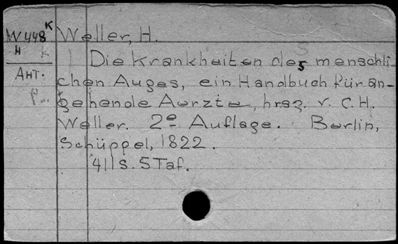 W448K Weller, H.
H K Die Krankheiten des menschli-
Ант. chen Auges, ein Handbuch für an-
gehende Aerzte, hrsg. v. C.H.
Weller. 2e Auflage. Berlin,
Schüppel, 1822.
411 S. 5 Taf.